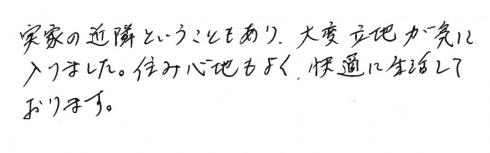 実家の近隣ということもあり、大変立地が気に
入りました。住み心地もよく、快適に生活して
おります。